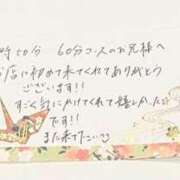 時50分 60分コースのお兄様へ
お店に初めて来てくれてありがとう
ございます!!
すごく気にかけてくれて嬉しかった
です!!
また来て下さい